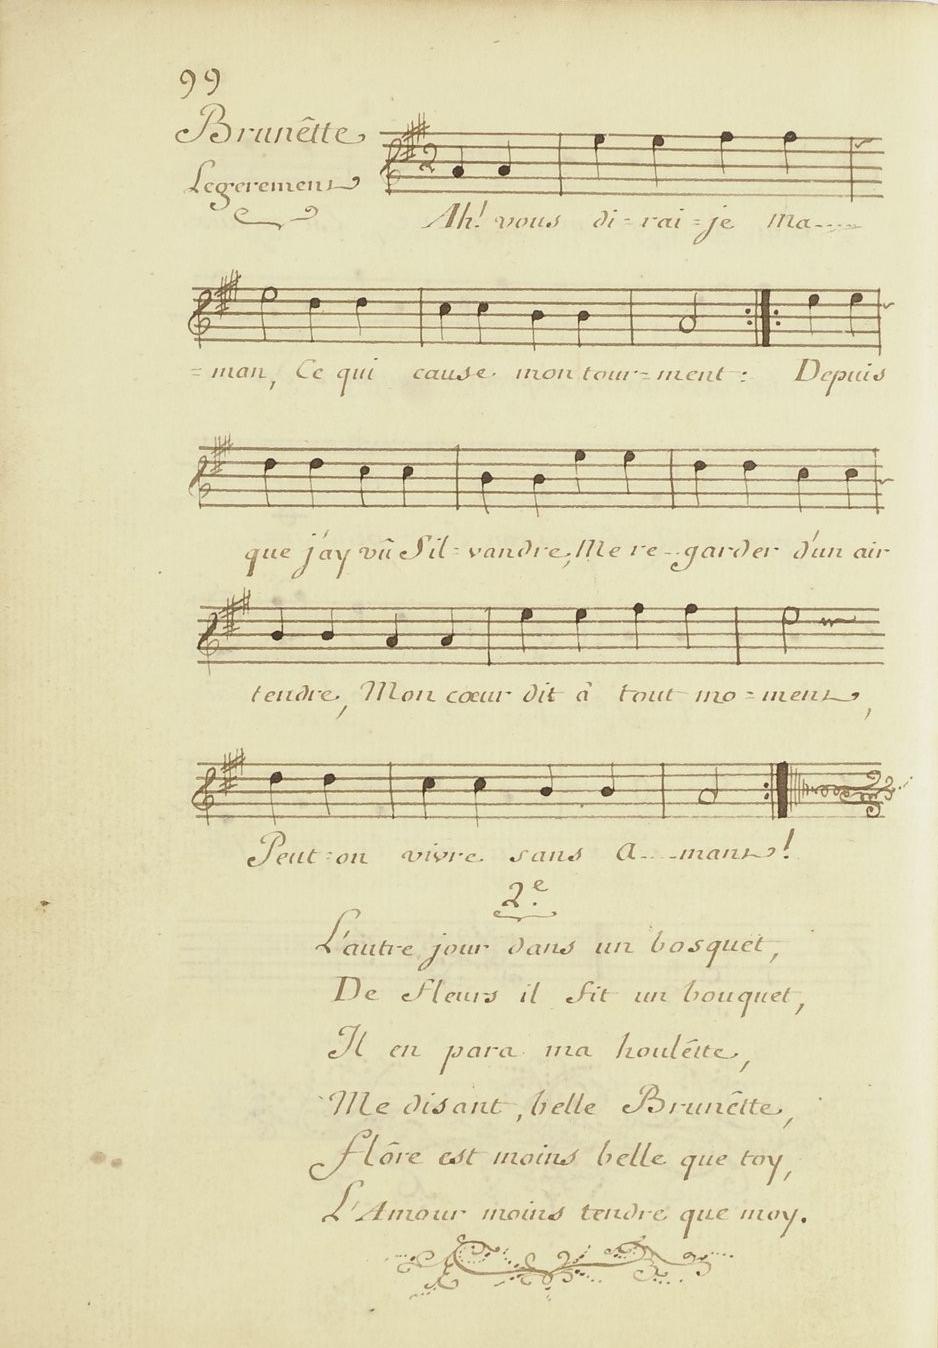 99
Brunêtte
Legerement
2
Ah! vous di=rai=je ma----
=man, Ce qui cause mon tour=ment: Depuis
que j'ay vû Sil=vandre, Me re--garder d'un air
tendre, Mon cœur dit â tout mo=ment,
Peut=on vivre sans A----mant!
2.e
L'autre jour dans un bosquet,
De fleurs il fit un bouquet,
Il en para ma houlêtte,
Me disant, belle Brunêtte,
flôre est moins belle que toy,
L'Amour moins tendre que moy.